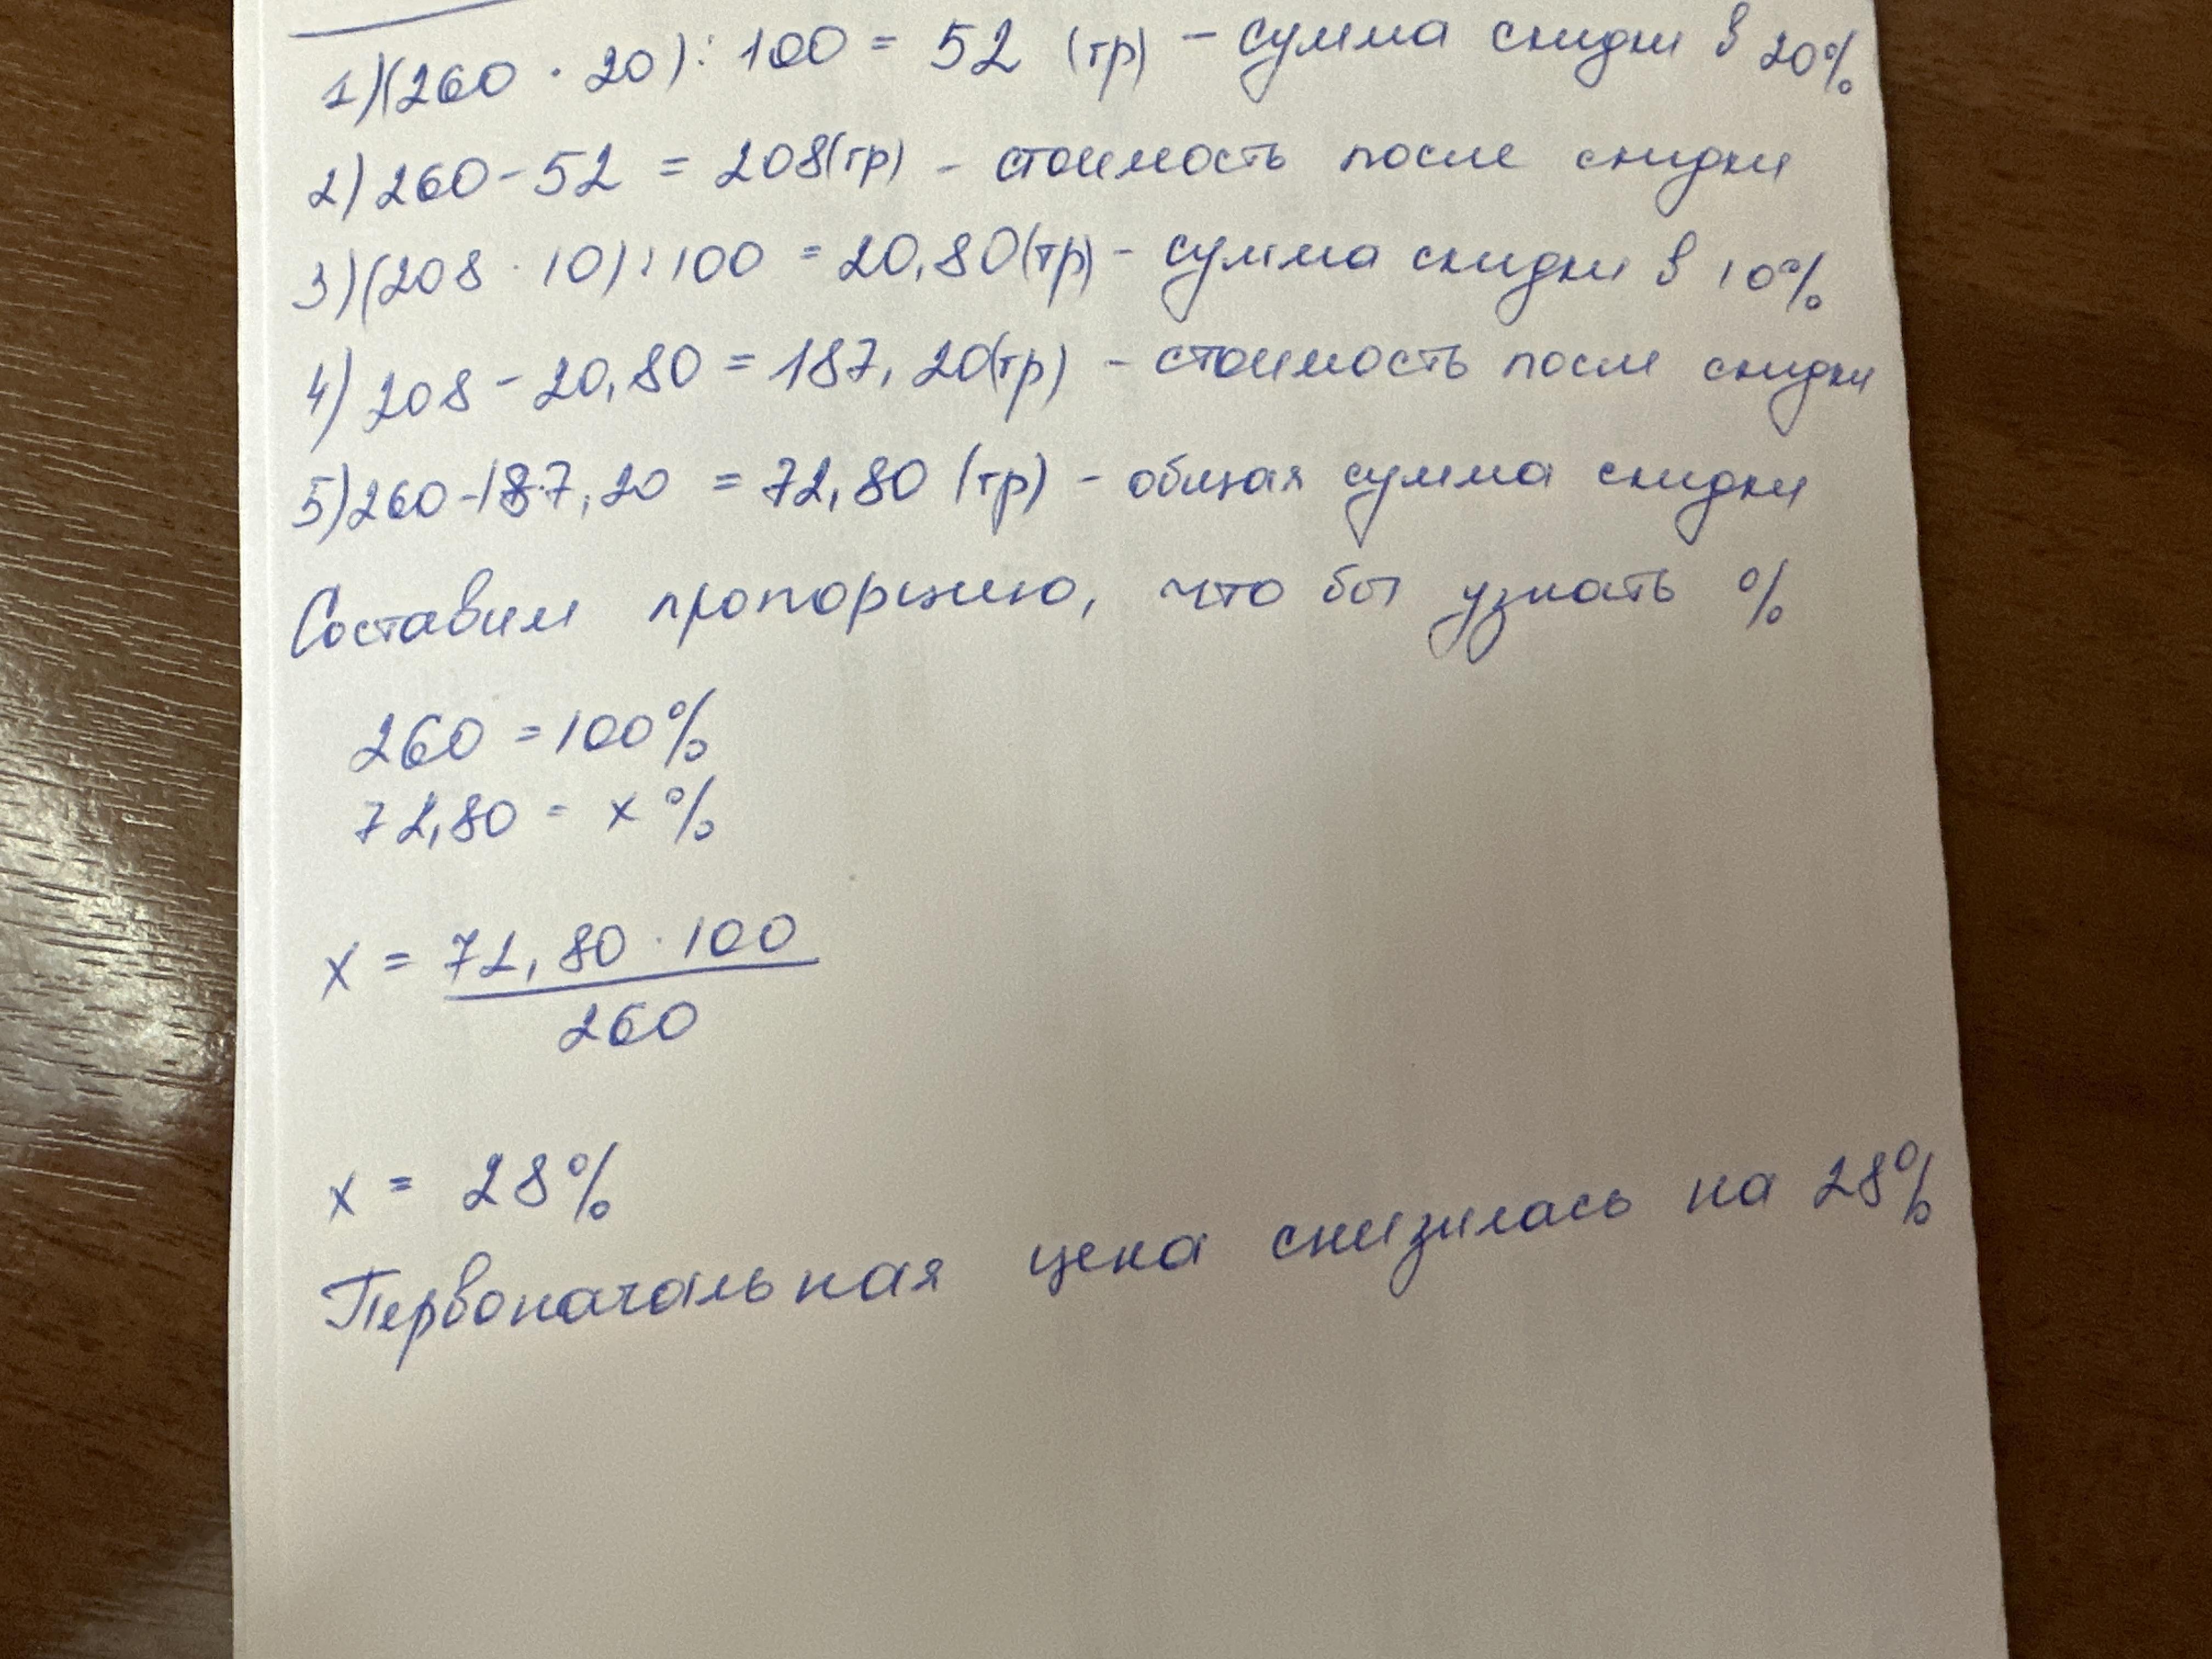 1)(260 · 20) : 100 = 52 (гр) - сумма скидки в 20%
2) 260 - 52 = 208(гр) - стоимость после скидки
3)(208 · 10) : 100 = 20,80(гр) - сумма скидки в 10%
4) 208 - 20,80 = 187,20(гр) - стоимость после скидки
5)260-187,20 = 72,80 (гр) - общая сумма скидки
Составим пропорцию, что бы узнать %
260 = 100%
72,80 = x %
x = 72,80 · 100
260
x = 28%
Первоначальная цена снизилась на 28%